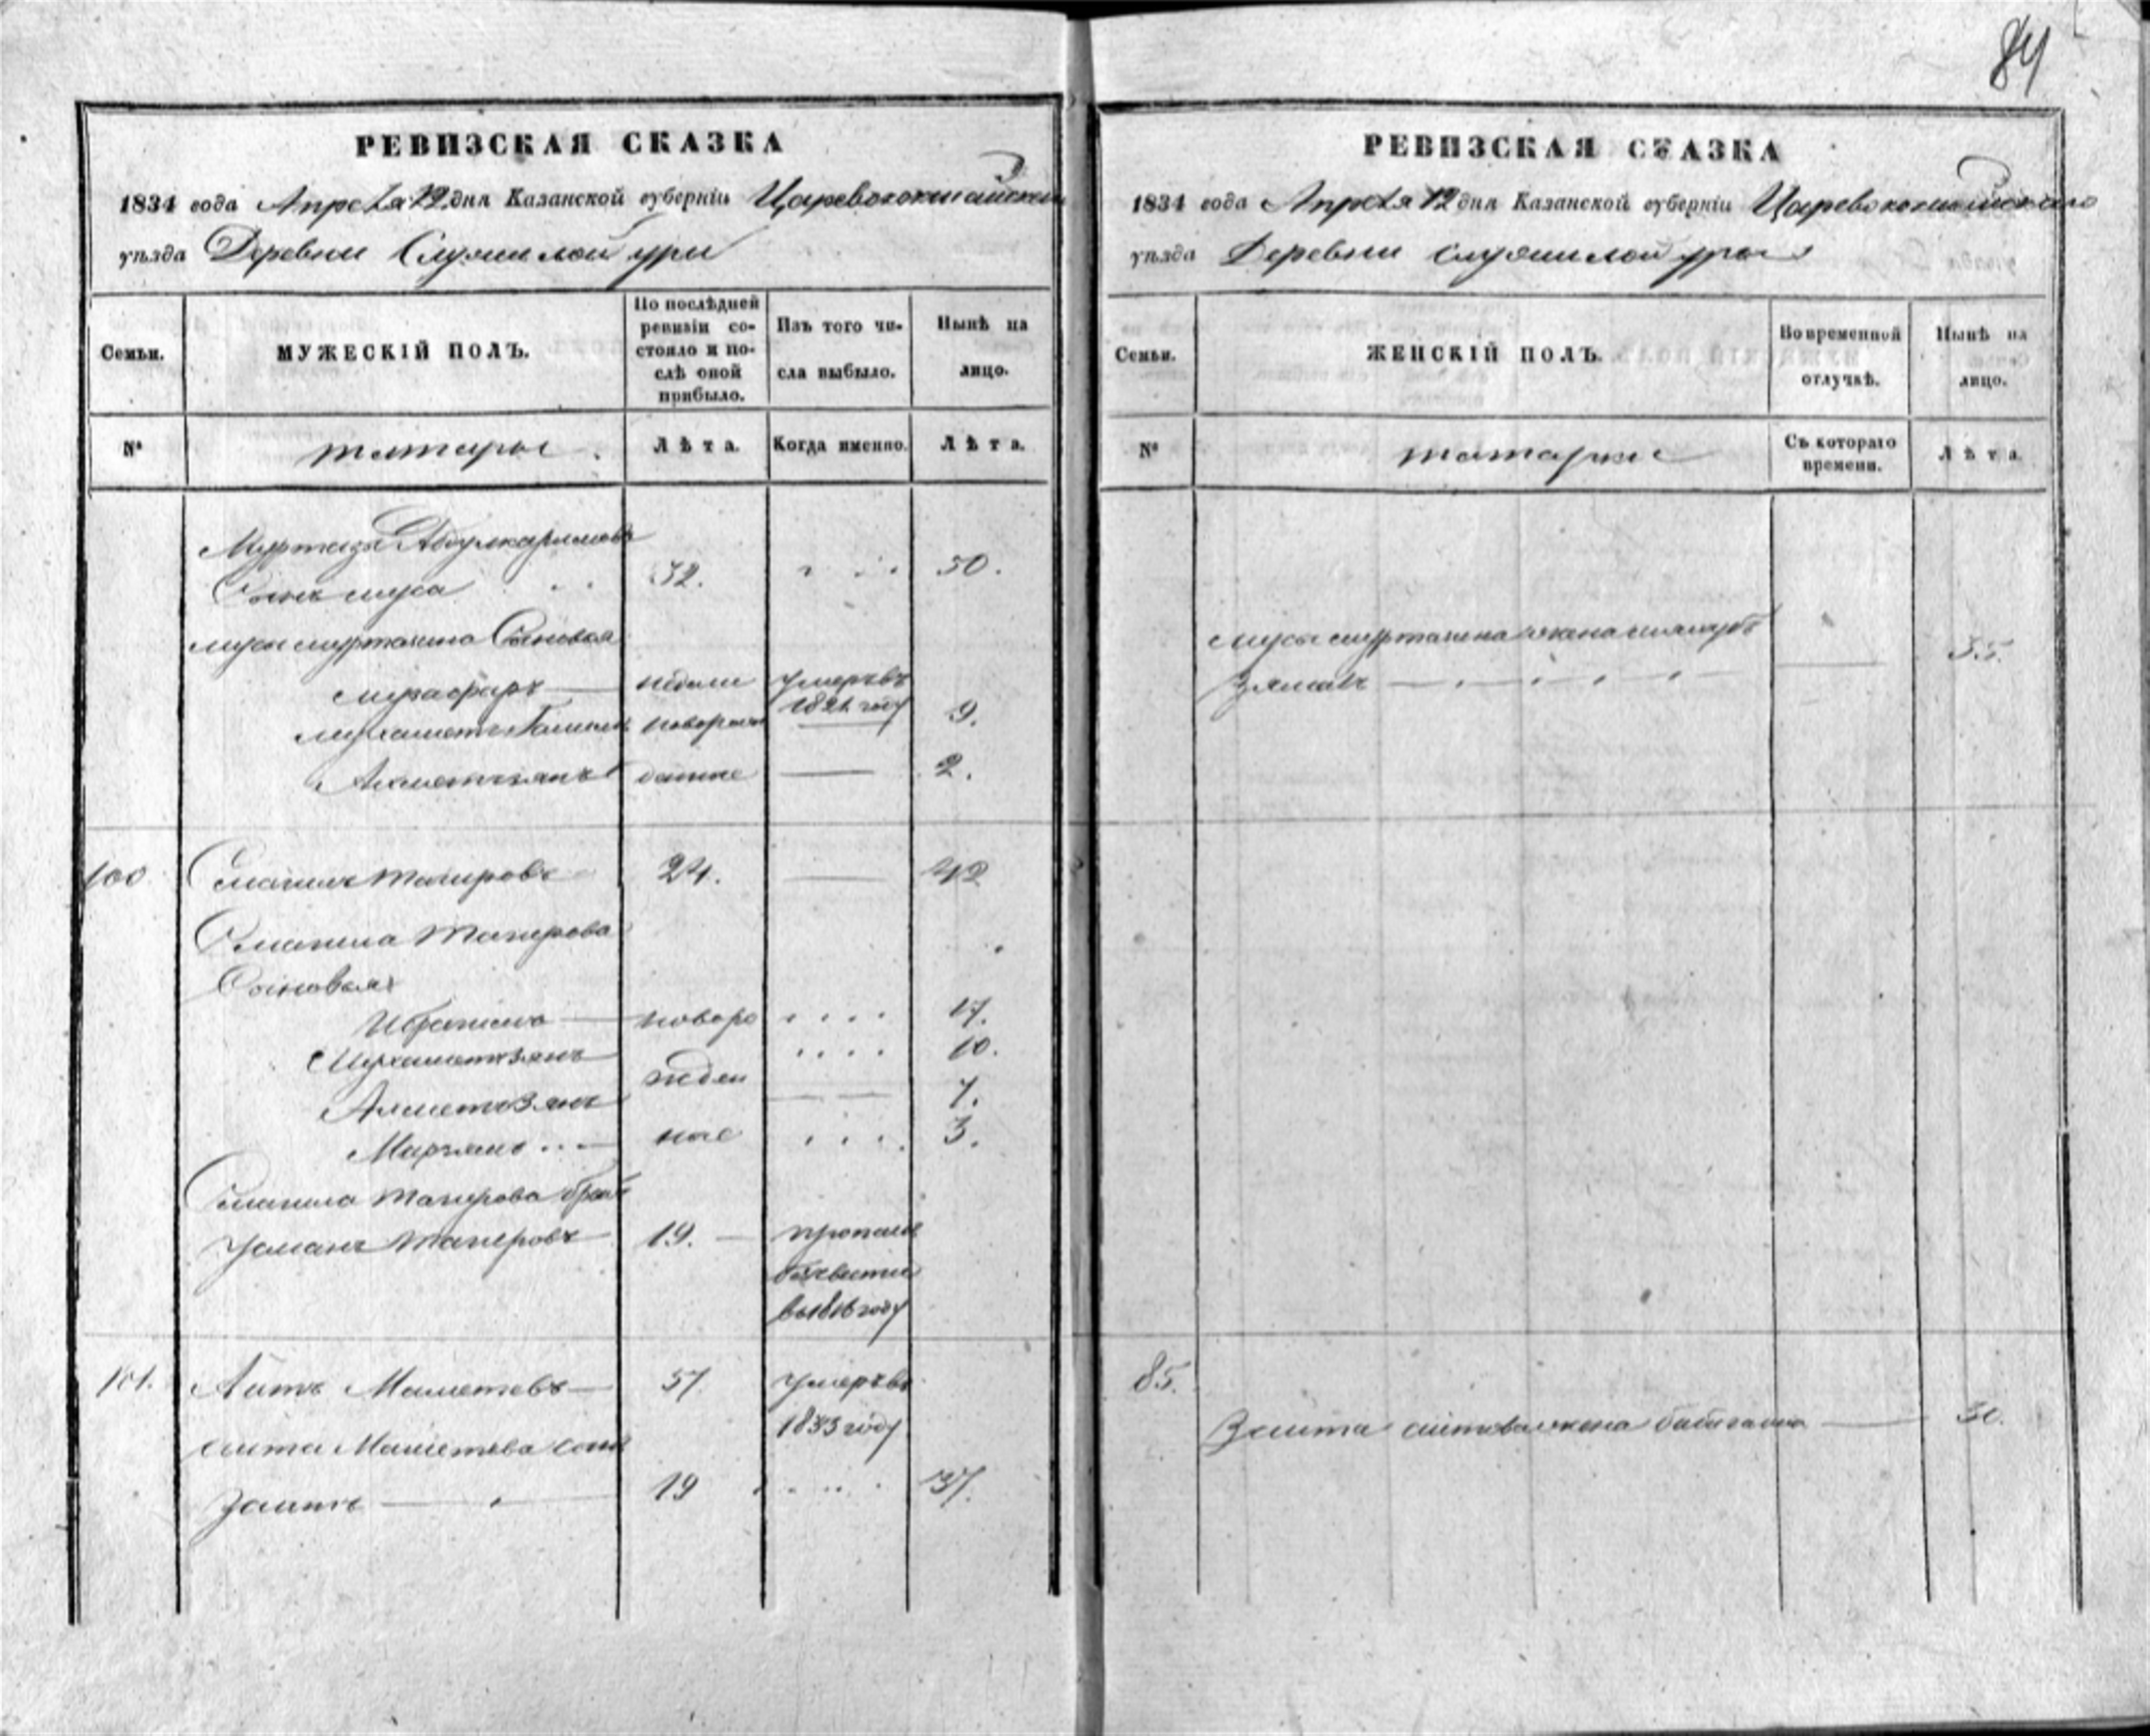 84
РЕВИЗСКАЯ СКАЗКА
1834 года Апреля 12 дня Казанской губерніи Царевококшайской
уѣзда Деревни Служилой ури
Семьи.
МУЖЕСКІЙ ПОЛЪ.
По послѣдней ревизіи состояло и послѣ оной прибыло.
Изъ того числа выбыло.
Нынѣ на лицо.
№
татары
Лѣта.
Когда именно.
Лѣта.
Муртазы Абдулкаримова
Сынъ муса 32. 50.
мусы муртазина Сыновья
музафаръ недели умеръ въ
1821 году
мухамет новорож 9.
Ахметзянъ 2.
100 Смагилъ Тагировъ 24. 42
Смагила Тагирова
Сыновья
Ибрагимъ новоро 17.
Мухаметзянъ 10.
ждѣн
Ахметзянъ 7.
ные 3.
Смагила Тагирова братъ
Усманъ Тагировъ 19. пропалъ
безвѣстно
в 1816 году
101. Аитъ Маметевъ 57. умеръ въ
1833 году
аита Маметева сынъ
Заитъ 19 37.
РЕВИЗСКАЯ СКАЗКА
1834 года Апреля 12 дня Казанской губерніи Царевококшайскаго
уѣзда Деревни служилой уры
Семьи.
ЖЕНСКІЙ ПОЛЪ.
Во временной отлучкѣ.
Нынѣ на лицо.
№
татарки
Съ котораго времени.
Лѣта.
мусы муртазина жена 35.
85.
Заита аитова жена бибигайша 30.